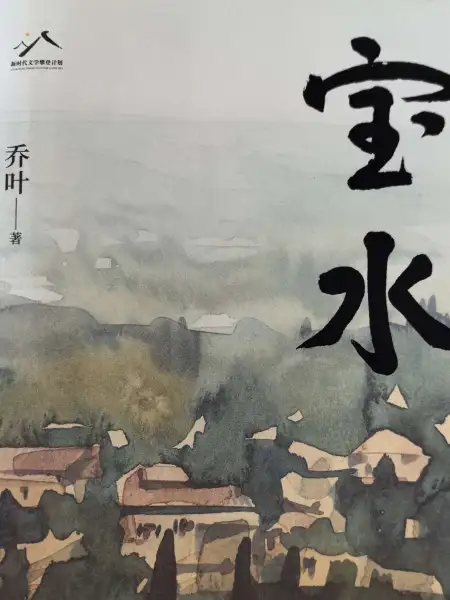 新时代文学攀登计划
乔叶 著
宝水